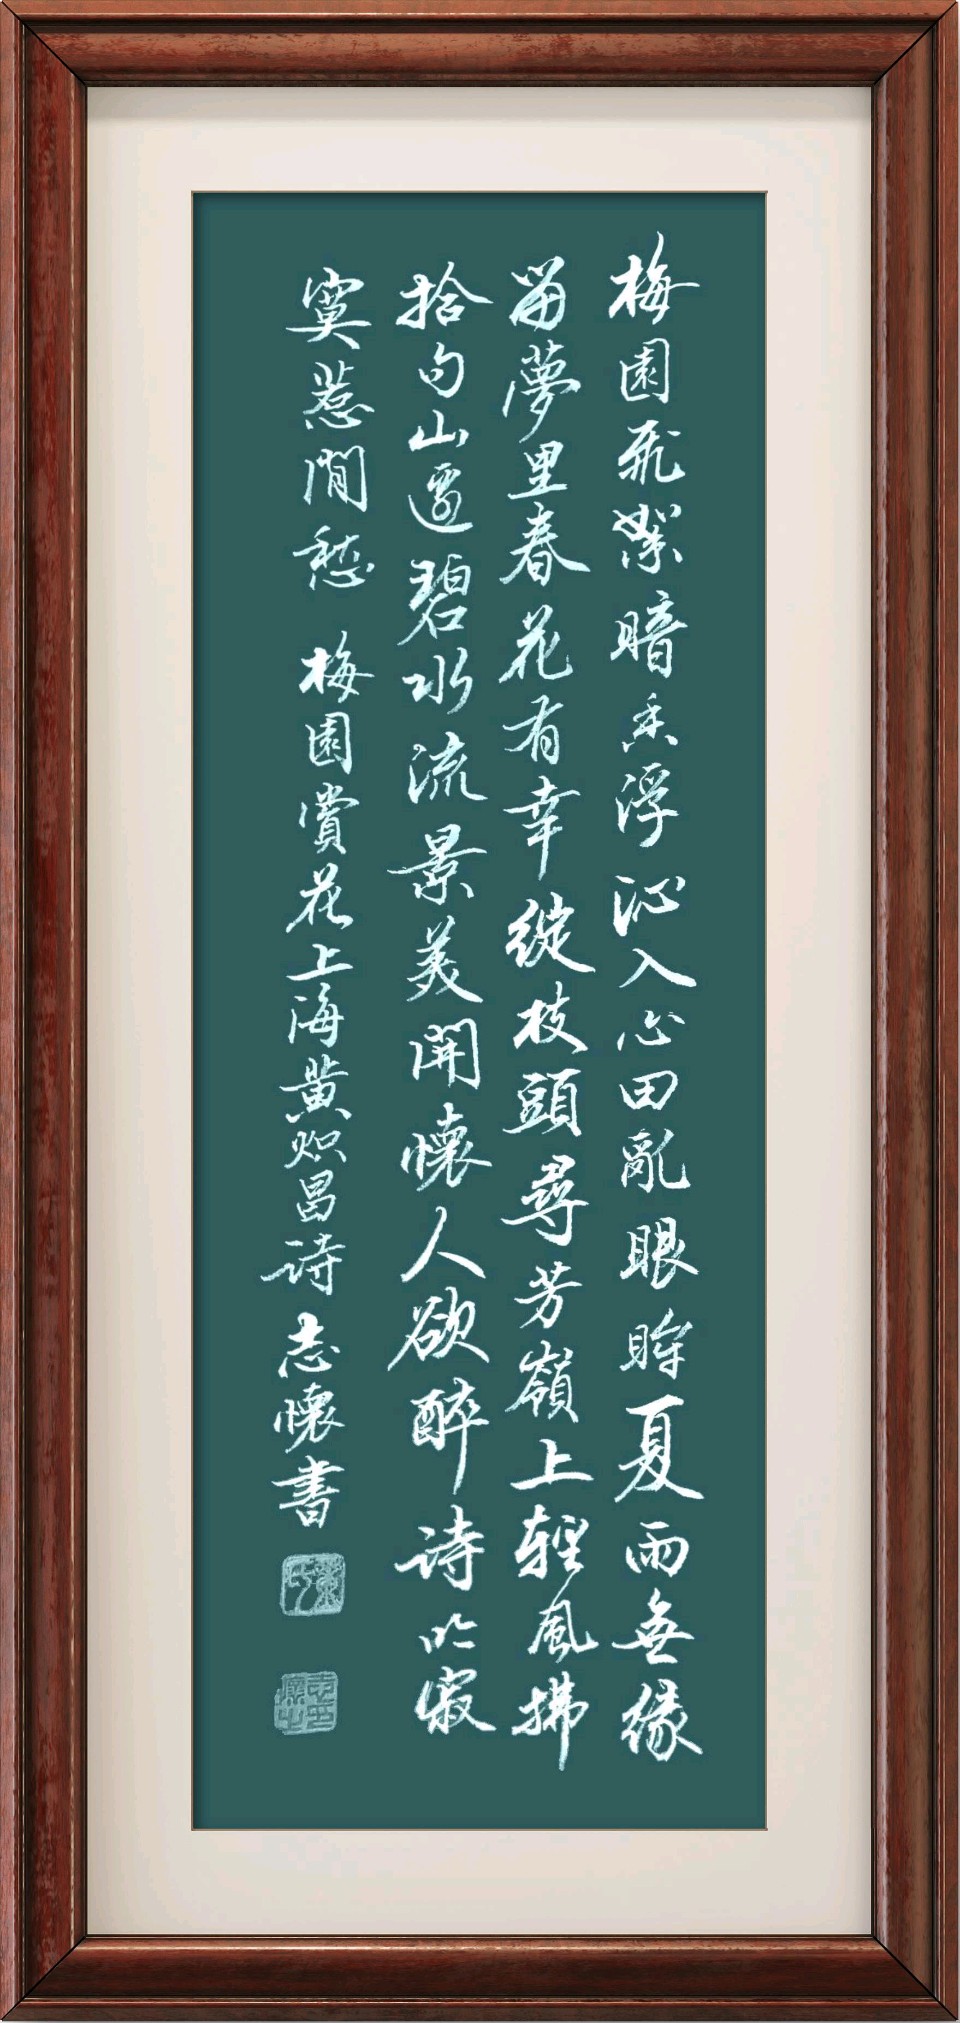 梅園飛絮暗香浮沁入心田亂眼眸夏雨無緣
留夢里春花有幸綻枝頭尋芳嶺上輕風拂
拾句山邊碧水流景美開懷人欲醉詩吟寂
寞惹閒愁 梅園賞花上海黃炽昌詩志懷書